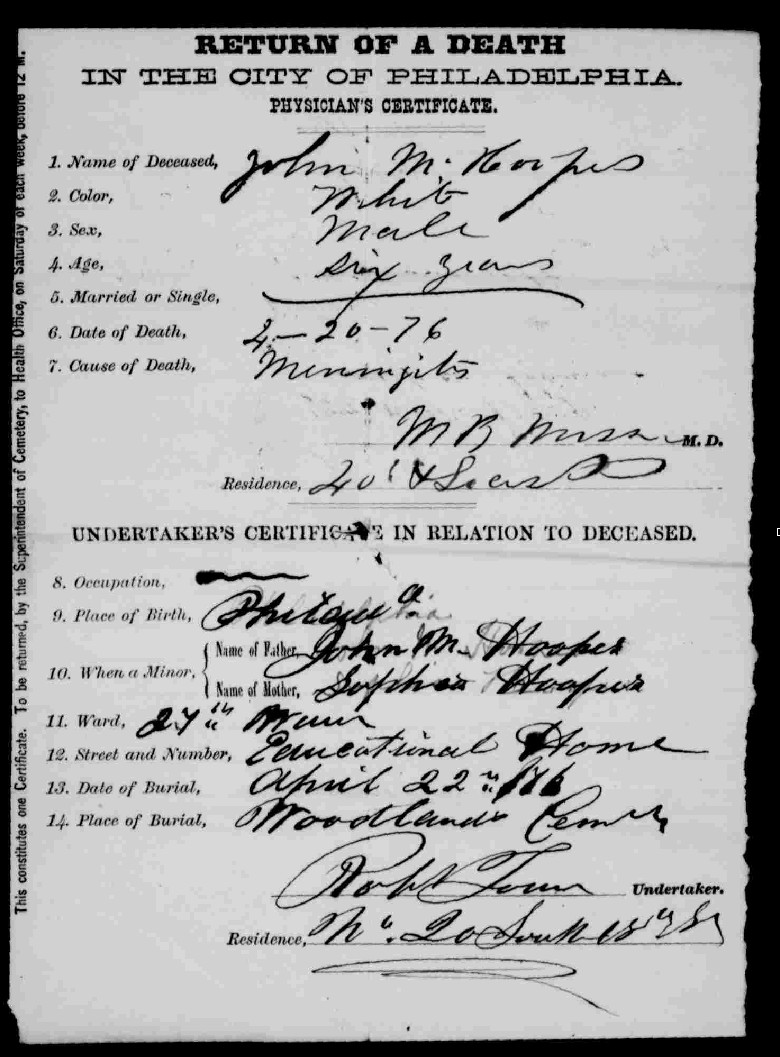 RETURN OF A DEATH
IN THE CITY OF PHILADELPHIA.
PHYSICIAN'S CERTIFICATE.
1. Name of Deceased, John M. Hoopes
2. Color, White
3. Sex, Male
4. Age, Six years
5. Married or Single,
6. Date of Death, 4-20-76
7. Cause of Death, Meningitis
M B M.D.
Residence, 40th &
UNDERTAKER'S CERTIFICATE IN RELATION TO DECEASED.
8. Occupation,
9. Place of Birth, Philada
10. When a Minor, { Name of Father, John M. Hoopes
Name of Mother, Sophia Hoopes
11. Ward, 27th Ward
12. Street and Number, Educational Home
13. Date of Burial, April 22nd 1876
14. Place of Burial, Woodlands Cemety
Robt Undertaker.
Residence, No. 20 South St
This constitutes one Certificate. To be returned, by the Superintendent of Cemetery, to Health Office, on Saturday of each week, before 12 M.